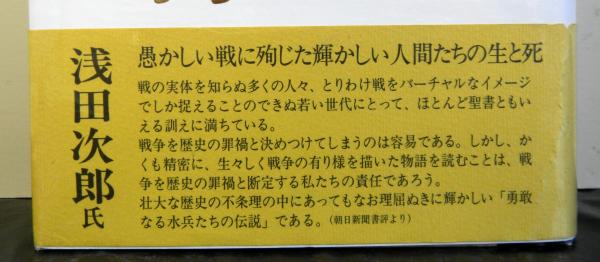 愚かしい戦に殉じた輝かしい人間たちの生と死
浅田次郎氏
戦の実体を知らぬ多くの人々、とりわけ戦をバーチャルなイメージ
でしか捉えることのできぬ若い世代にとって、ほとんど聖書ともい
える訓えに満ちている。
戦争を歴史の罪禍と決めつけてしまうのは容易である。しかし、か
くも精密に、生々しく戦争の有り様を描いた物語を読むことは、戦
争を歴史の罪禍と断定する私たちの責任であろう。
壮大な歴史の不条理の中にあってもなお理屈ぬきに輝かしい「勇敢
なる水兵たちの伝説」である。(朝日新聞書評より)